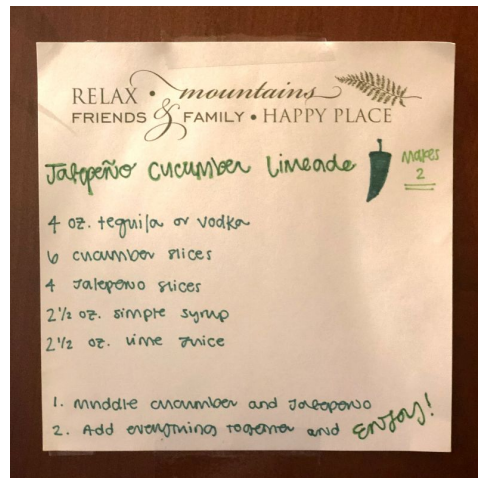 RELAX • mountains
FRIENDS & FAMILY • HAPPY PLACE
Jalapeño Cucumber Limeade
Makes
2
4 oz. tequila or vodka
6 cucumber slices
4 Jalepeno slices
2 1/2 oz. simple syrup
2 1/2 oz. lime juice
1. Muddle cucumber and Jalepeno
2. Add everything together and ENJOY!